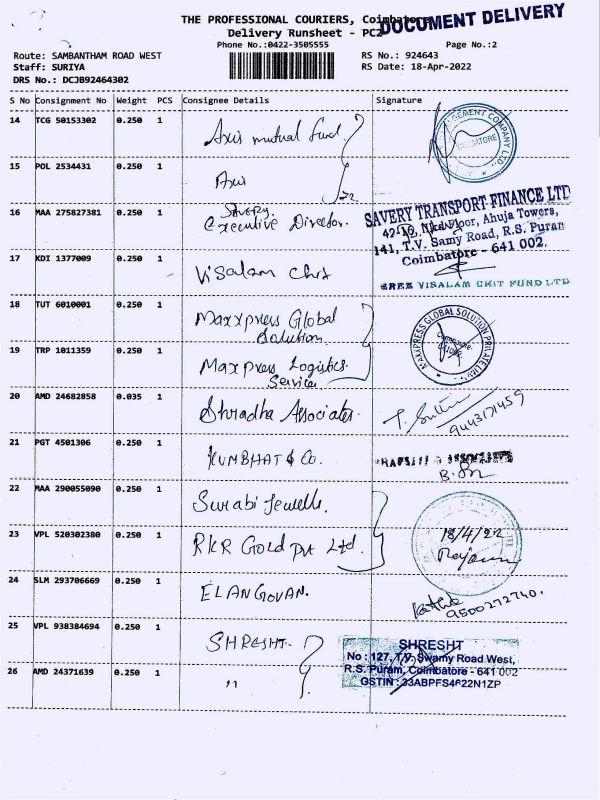 THE PROFESSIONAL COURIERS, Coimbatore
DOCUMENT DELIVERY
Delivery Runsheet - PC2
Phone No.:0422-3505555
Page No.:2
Route: SAMBANTHAM ROAD WEST
RS No.: 924643
Staff: SURIYA
RS Date: 18-Apr-2022
DRS No.: DCJB92464302
S No Consignment No Weight PCS Consignee Details Signature
14 TCG 50153302 0.250 1 Axis mutual fund
15 POL 2534431 0.250 1 Axis
16 MAA 275827381 0.250 1 Savery
Executive Director.
SAVERY TRANSPORT FINANCE LTD
Floor, Ahuja Towers,
141, T.V. Samy Road, R.S. Puram
Coimbatore - 641 002.
17 KDI 1377009 0.250 1 Visalam Chit
SREE VISALAM CHIT FUND LTD
18 TUT 6010001 0.250 1 Maxxpress Global
Solution
MAXXPRESS GLOBAL SOLUTION PRIVATE LIMITED
19 TRP 1011359 0.250 1 Maxpress Logistics
Service
20 AMD 24682858 0.035 1 Shradha Associates.
9443171459
21 PGT 4501306 0.250 1 KUMBHAT & Co.
22 MAA 290055090 0.250 1 Surabi Jewells.
23 VPL 520302380 0.250 1 RKR GOLD Pvt Ltd.
18/4/22
24 SLM 293706669 0.250 1 ELANGOVAN.
9500272740.
25 VPL 938384694 0.250 1 SHRESHT.
SHRESHT
No : 127, Swamy Road West,
R.S. Puram, Coimbatore - 641 002
GSTIN : 33ABPFS4622N1ZP
26 AMD 24371639 0.250 1 "